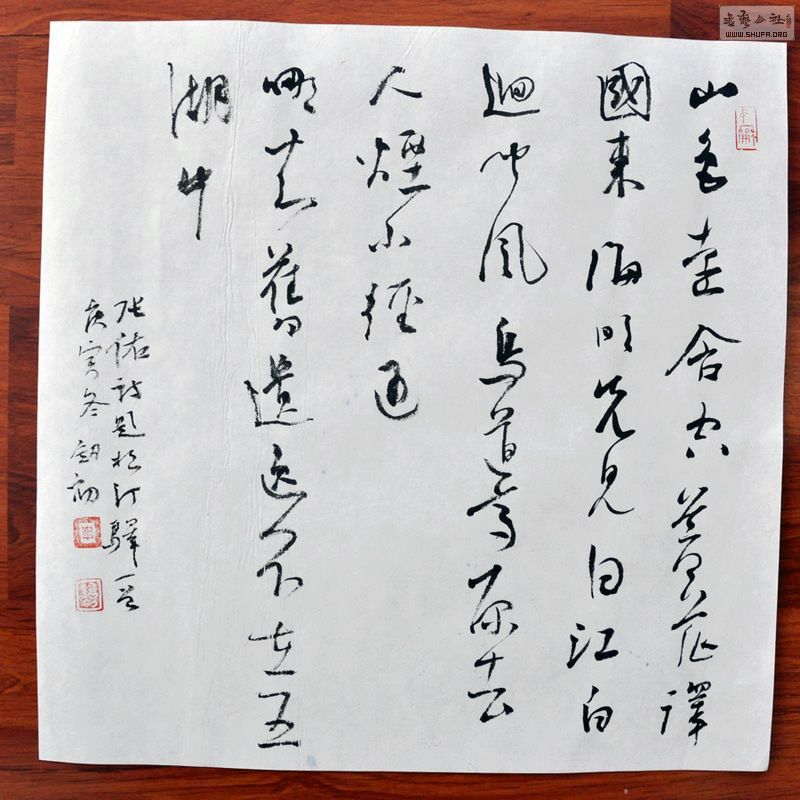 山色遠含空蒼茫澤
國東海明先見日江白
迥聞風鳥道高原去
人煙小徑通
哪知舊遺逸不在五
湖中
張祜詩題松汀驛一首
庚寅冬
書藝公社
WWW.SHUFA.ORG